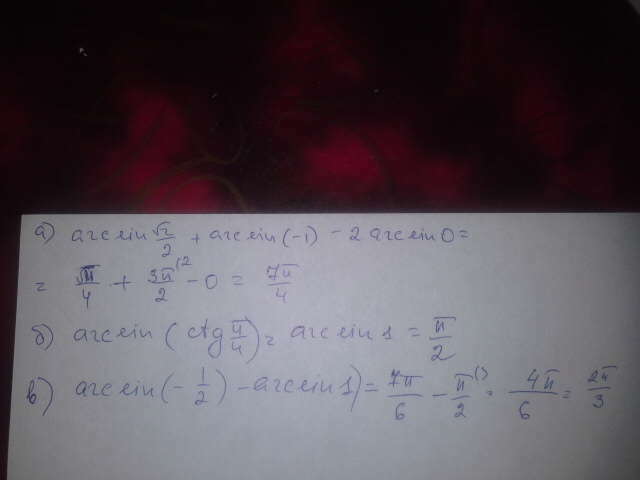 а) arcsin √2/2 + arcsin(-1) - 2 arcsin 0 =
= π/4 + 3π/2 (2 - 0 = 7π/4
б) arcsin (ctg π/4) = arcsin 1 = π/2
в) arcsin(-1/2) - arcsin 1) = 7π/6 - π/2 (3 = 4π/6 = 2π/3